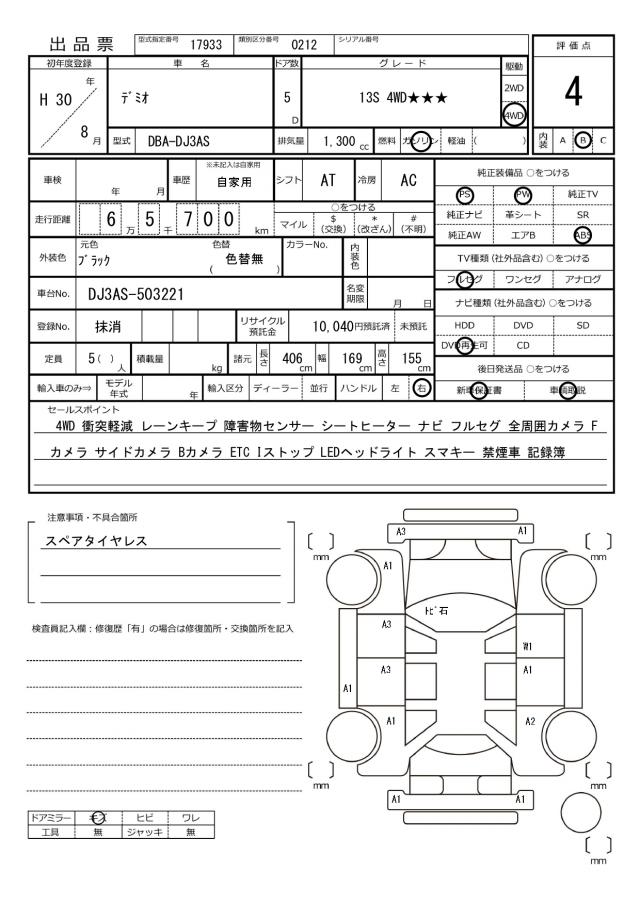 出品票 型式指定番号 17933 類別区分番号 0212 シリアル番号
評価点
4
初年度登録 車名 ドア数 グレード 駆動
H 30 年 8 月
デミオ
5 D
13S 4WD★★★
2WD
4WD
型式 DBA-DJ3AS 排気量 1,300 cc 燃料 ガソリン 軽油 ( )
内装 A B C
車検 年 月 車歴 ※未記入は自家用 自家用 シフト AT 冷房 AC
純正装備品 ○をつける
PS PW 純正TV
純正ナビ 革シート SR
純正AW エアB ABS
走行距離 6 万 5 千 7 0 0 km
○をつける
マイル $(交換) *(改ざん) #(不明)
外装色 元色 ブラック 色替 ( 色替無 ) カラーNo. 内装色
TV種類(社外品含む)○をつける
フルセグ ワンセグ アナログ
車台No. DJ3AS-503221 名変期限 月 日
ナビ種類(社外品含む)○をつける
HDD DVD SD
DVD再生可 CD
登録No. 抹消 リサイクル預託金 10,040円預託済 未預託
定員 5( )人 積載量 kg 諸元 長さ 406 cm 幅 169 cm 高さ 155 cm
後日発送品 ○をつける
新車保証書 車輌取説
輸入車のみ⇒ モデル年式 年 輸入区分 ディーラー 並行 ハンドル 左 右
セールスポイント
4WD 衝突軽減 レーンキープ 障害物センサー シートヒーター ナビ フルセグ 全周囲カメラ F
カメラ サイドカメラ Bカメラ ETC Iストップ LEDヘッドライト スマキー 禁煙車 記録簿
注意事項・不具合箇所
スペアタイヤレス
検査員記入欄：修復歴「有」の場合は修復箇所・交換箇所を記入
A3 A1
mm mm
A1
トビ石
A3
W1
A3 A1
A1
A1 A2
mm mm
A1 A1
mm
ドアミラー キズ ヒビ ワレ
工具 無 ジャッキ 無